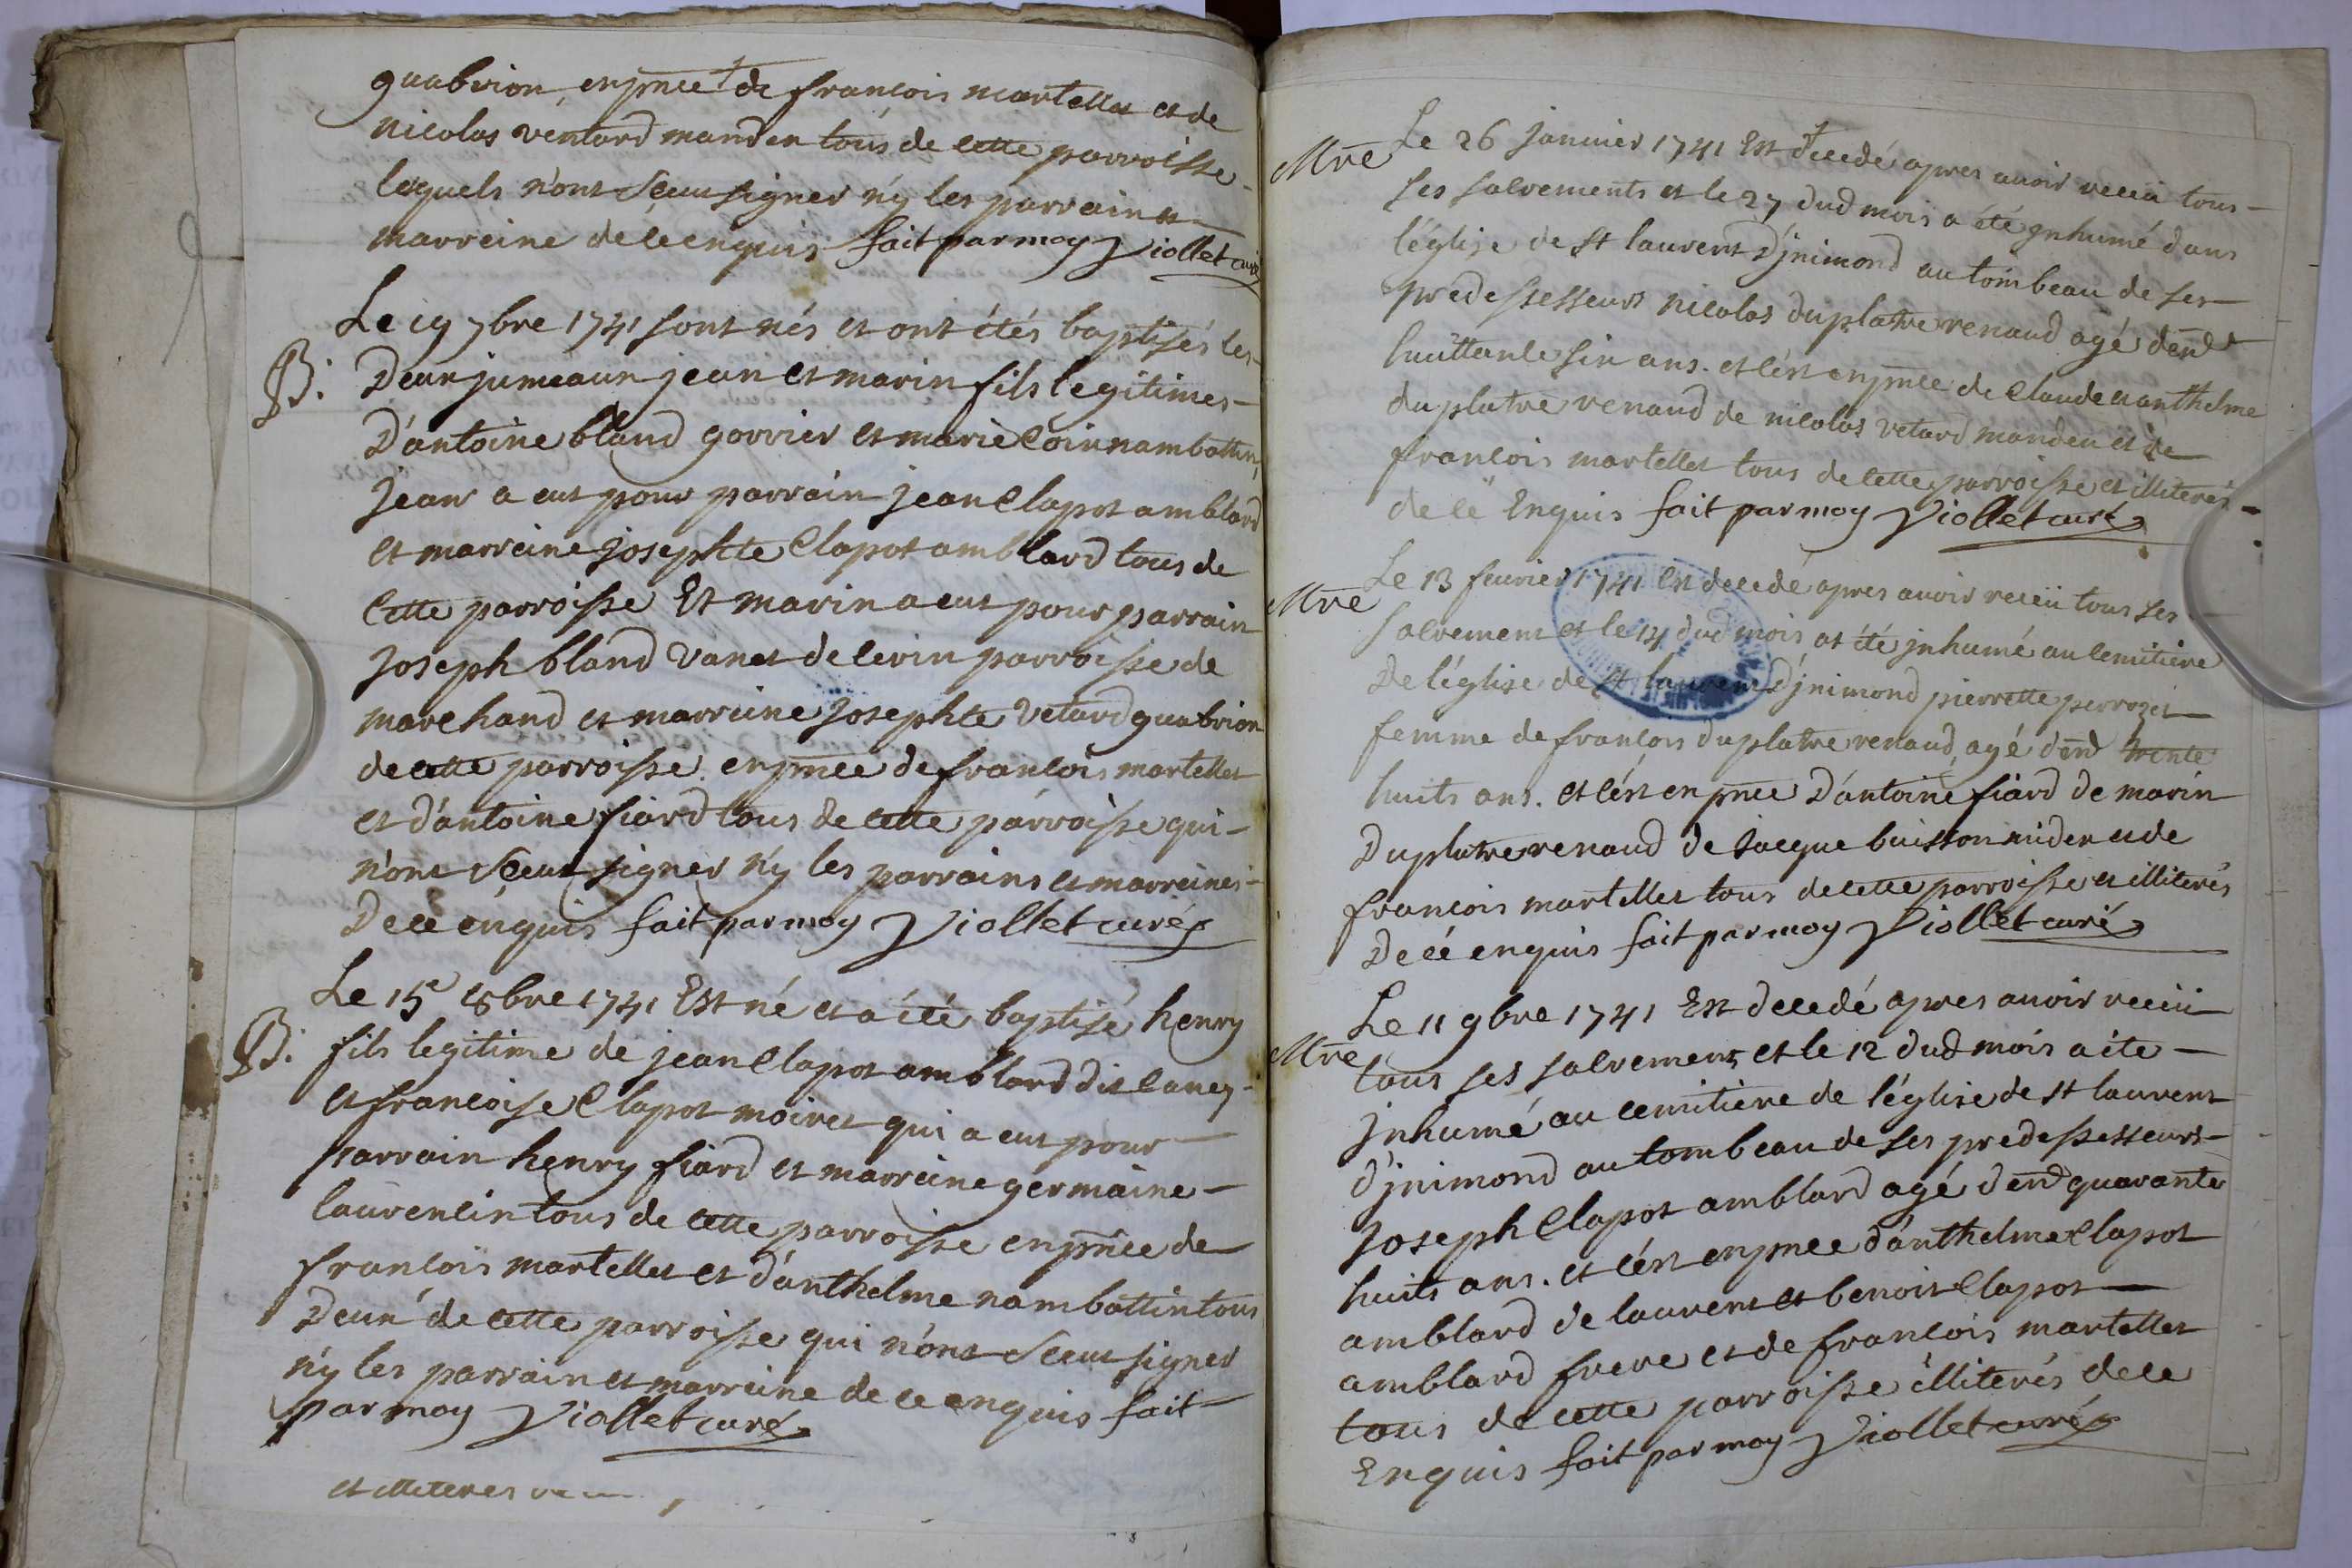 quabrion, enpñce de francois martellet et de
nicolas vetard manden tous de cette parroisse
lesquels n'ont sceu signer n'y les parrain et
marreine de ce enquis fait par moy Viollet curé
Le 19 7bre 1741 sont nés et ont étés baptisés les
B. Deux jumeaux jean et marin fils legitimes
D'antoine bland gorrier et marie Coin nambottin,
jean a eut pour parrain jean Clapot amblard
et marreine josephte Clapot amblard tous de
Cette parroisse Et marin a eut pour parrain
joseph bland vanet de cerin parroisse de
marchand et marreine josephte vetard quabrion
de cette parroisse. enpñce de francois martellet
et d'antoine fiard tous de cette parroisse qui
n'ont sceut signer n'y les parrains et marreines
De ce enquis fait par moy Viollet curé
Le 15 8bre 1741 Est né et a été baptisé henry
B. fils legitime de jean Clapot amblard dit
et francoise Clapot moiret qui a eut pour
parrain henry fiard et marreine germaine
laurencin tous de cette parroisse enpñce de
francois martellet et d'anthelme nambottin tous
Deux de cette parroisse qui n'ont sceut signer
n'y les parrain et marreine de ce enquis fait
par moy Viollet curé
et illiteres
Mre Le 26 janvier 1741 Est decedé apres avoir receü tous
ses salvements et le 27 dud mois a été jnhumé dans
l'église de St laurent D'jnimond au tombeau de ses
predessesseurs nicolas duplatre renaud agé d'end
huittante six ans. et c'est enpñce de Claude et anthelme
du platre renaud de nicolas vetard manden et de
francois martellet tous de cette parroisse et illiterés
de ce Enquis fait par moy Viollet curé
Mre Le 13 fevrier 1741 Est decedé apres avoir receü tous ses
salvement et le 14 dud mois at été jnhumé au cemitiere
De l'église de St laurent D'jnimond pierrette perrozet
femme de francois duplatre renaud, agé d'end trente
huits ans. et c'est en pñce D'antoine fiard de marin
Duplatre renaud de jacque buisson miden et de
francois martellet tous de cette parroisse et illiterés
De cé enquis fait par moy Viollet curé
Le 11 9bre 1741 Est decedé apres avoir receü
Mre tous ses salvement, et le 12 dud mois a ete
jnhumé au cemitiere de l'église de st laurent
d'jnimond au tombeau de ses predessesseurs
joseph Clapot amblard agé d'end quarante
huits ans. et c'est enpñce d'anthelme Clapot
amblard de laurent et benoit Clapot
amblard frere et de francois martellet
tous de cette parroisse illiterés de ce
Enquis fait par moy Viollet curé